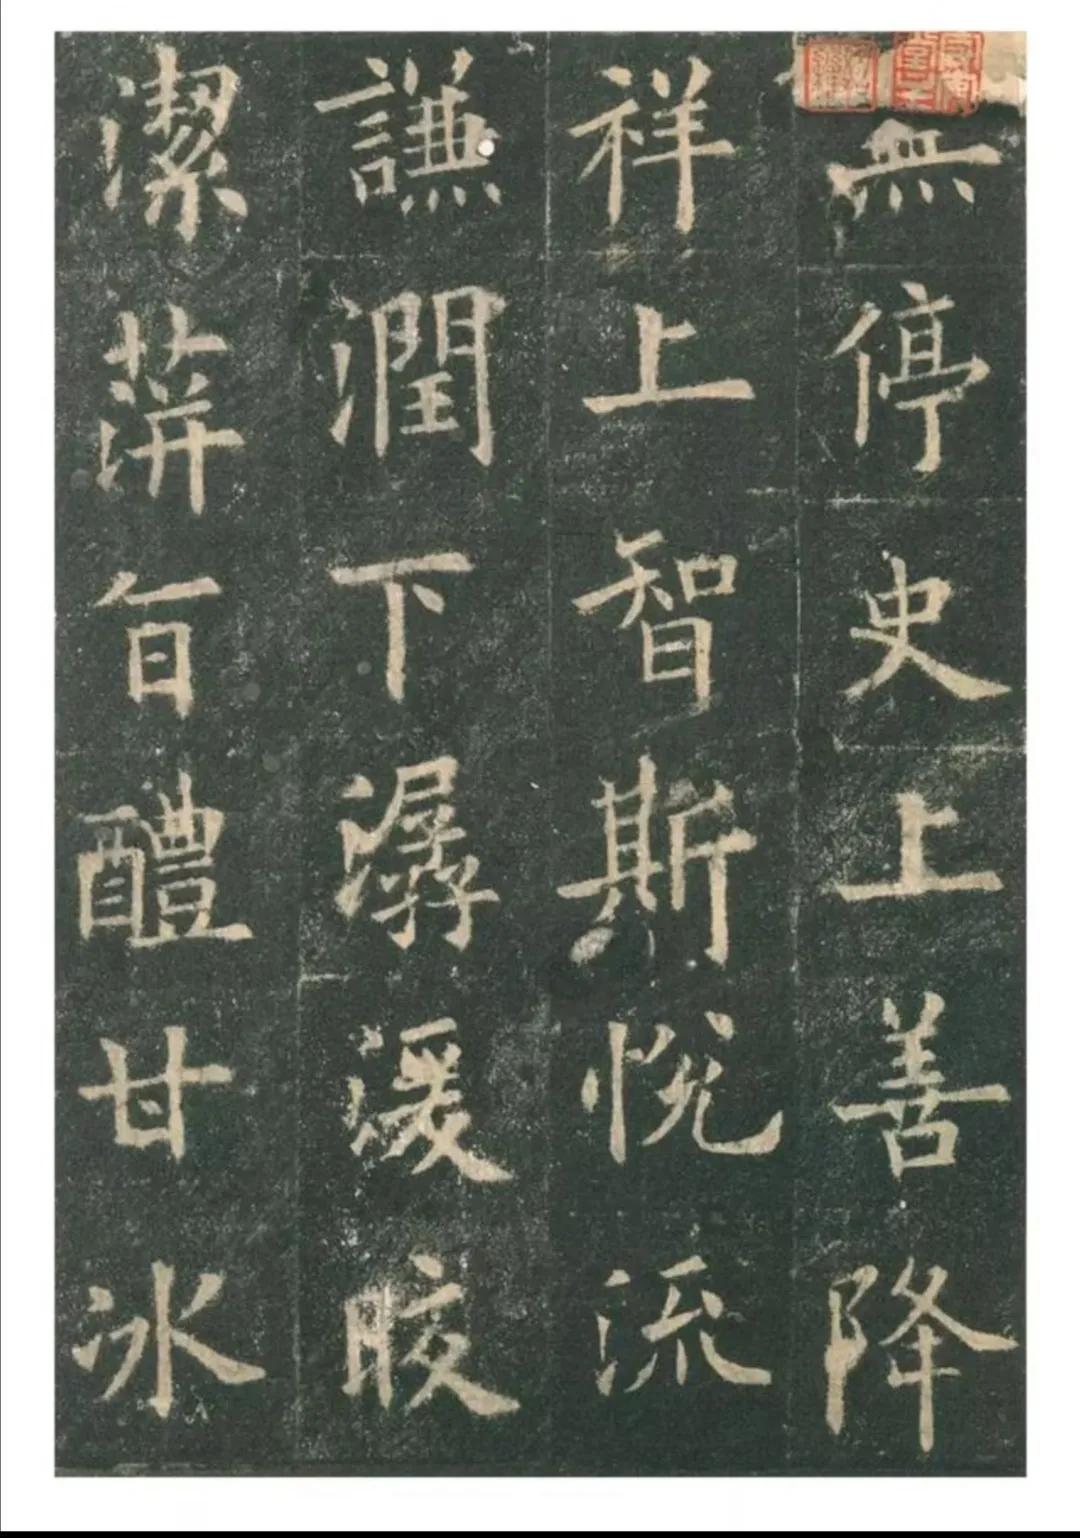 無停史上善降
祥上智斯悦流
謙潤下潺湲晈
潔蓱旨醴甘冰